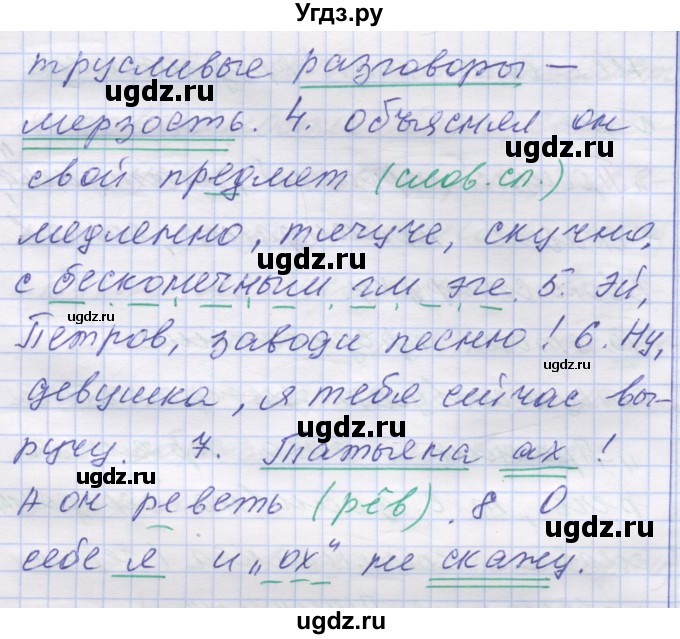 Угдз.ру
трусливые разговоры —
мерзость. 4. Объяснял он
свой предмет (слов.сл.)
медленно, тягуче, скучно,
с бесконечным гм эге. 5. Эй,
Петров, заводи песню! 6. Ну,
девушка, я тебя сейчас вы-
ручу. 7. Татьяна ах!
А он реветь (рёв). 8 О
себе я и „ох“ не скажу.
ugdz.ru
ugdz.ru
ugdz.ru
ugdz.ru
ugdz.ru
ugdz.ru
ugdz.ru
ugdz.ru
ugdz.ru
ugdz.ru
ugdz.ru
ugdz.ru